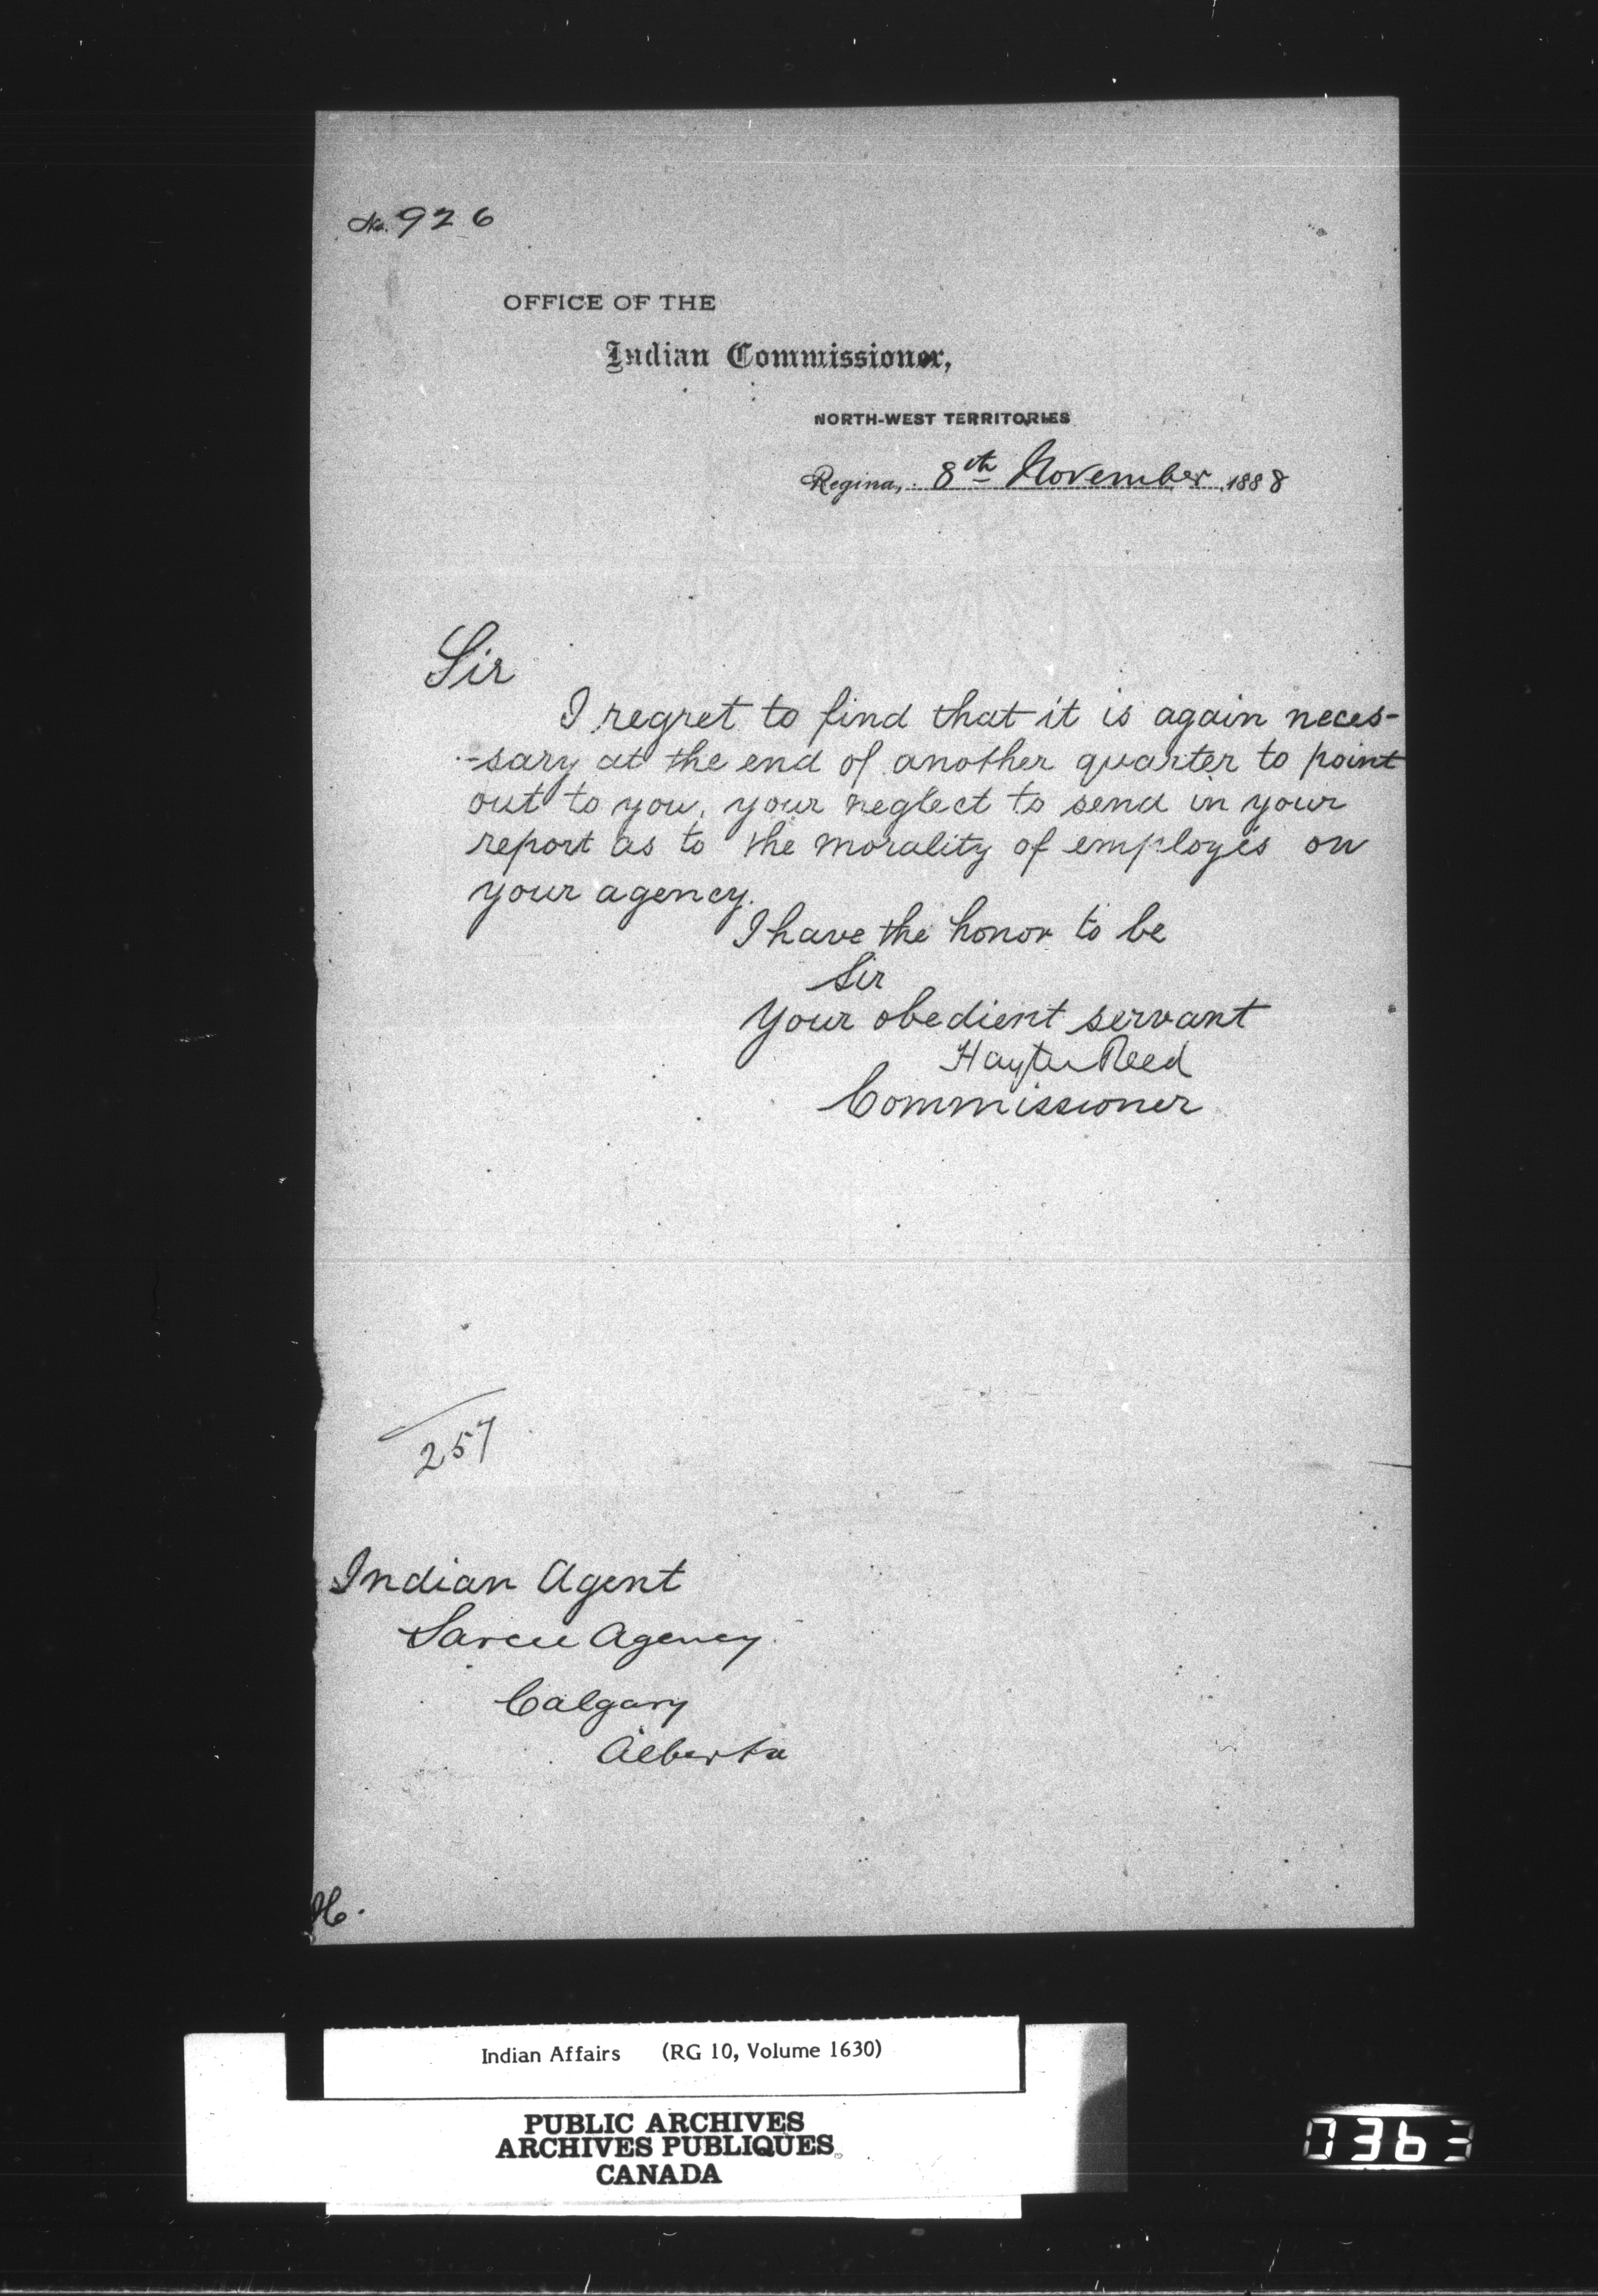 No. 926
OFFICE OF THE
Indian Commissioner,
NORTH-WEST TERRITORIES
Regina, 8th November 1888
Sir
I regret to find that it is again neces-
-sary at the end of another quarter to point
out to you, your neglect to send in your
report as to the morality of employés on
your agency.
I have the honor to be
Sir
Your obedient servant
Hayter Reed
Commissioner
257
Indian Agent
Sarcee Agency
Calgary
Alberta
H.
Indian Affairs (RG 10, Volume 1630)
PUBLIC ARCHIVES
ARCHIVES PUBLIQUES
CANADA
0363